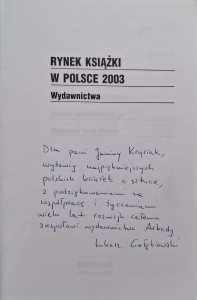 RYNEK KSIĄŻKI
W POLSCE 2003
Wydawnictwa
Dla pani Janiny Krysiak,
wydawcy najpiękniejszych
polskich książek o sztuce,
z podziękowaniem za
współpracę i życzeniami
wielu lat rozwoju całemu
zespołowi wydawnictwa Arkady
Łukasz Gołębiewski